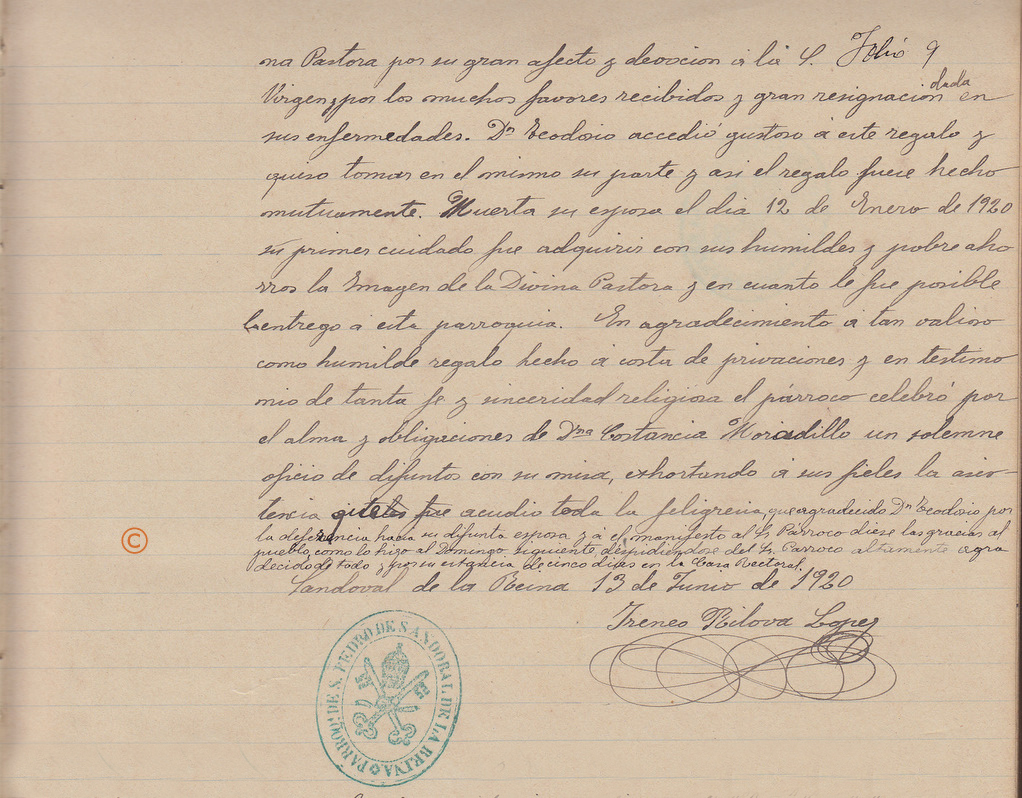 Folio 9
na Pastora por su gran afecto y devocion á la S.
Virgen y por los muchos favores recibidos y gran resignacion dada en
sus enfermedades. Dn Teodosio accedió gustoso á este regalo y
quiso tomar en el mismo su parte y asi el regalo fuese hecho
mutuamente. Muerta su esposa el dia 12 de Enero de 1920
su primer cuidado fue adquirir con sus humildes y pobre aho
rros la Imagen de la Divina Pastora y en cuanto le fue posible
la entrego á esta parroquia. En agradecimiento á tan valioso
como humilde regalo hecho á costa de privaciones y en testimo
nio de tanta fe y sinceridad religiosa el párroco celebró por
el alma y obligaciones de Dña Costancia Moradillo un solemne
oficio de difuntos con su misa, exhortando á sus fieles la asis-
tencia acudio toda la feligresia, que agradecido Dn Teodosio por
la deferencia hacia su difunta esposa y á el manifesto al Sr Párroco diese las gracias al
pueblo, como lo hizo al Domingo siguiente, despidiendose del Sr Parroco altamente agra
decido de todo y por su estancia de cinco dias en la Casa Rectoral.
Sandoval de la Reina 13 de Junio de 1920
Ireneo Rilova Lopez
PARROQ.A DE S. PEDRO DE SANDOBAL DE LA REINA
©